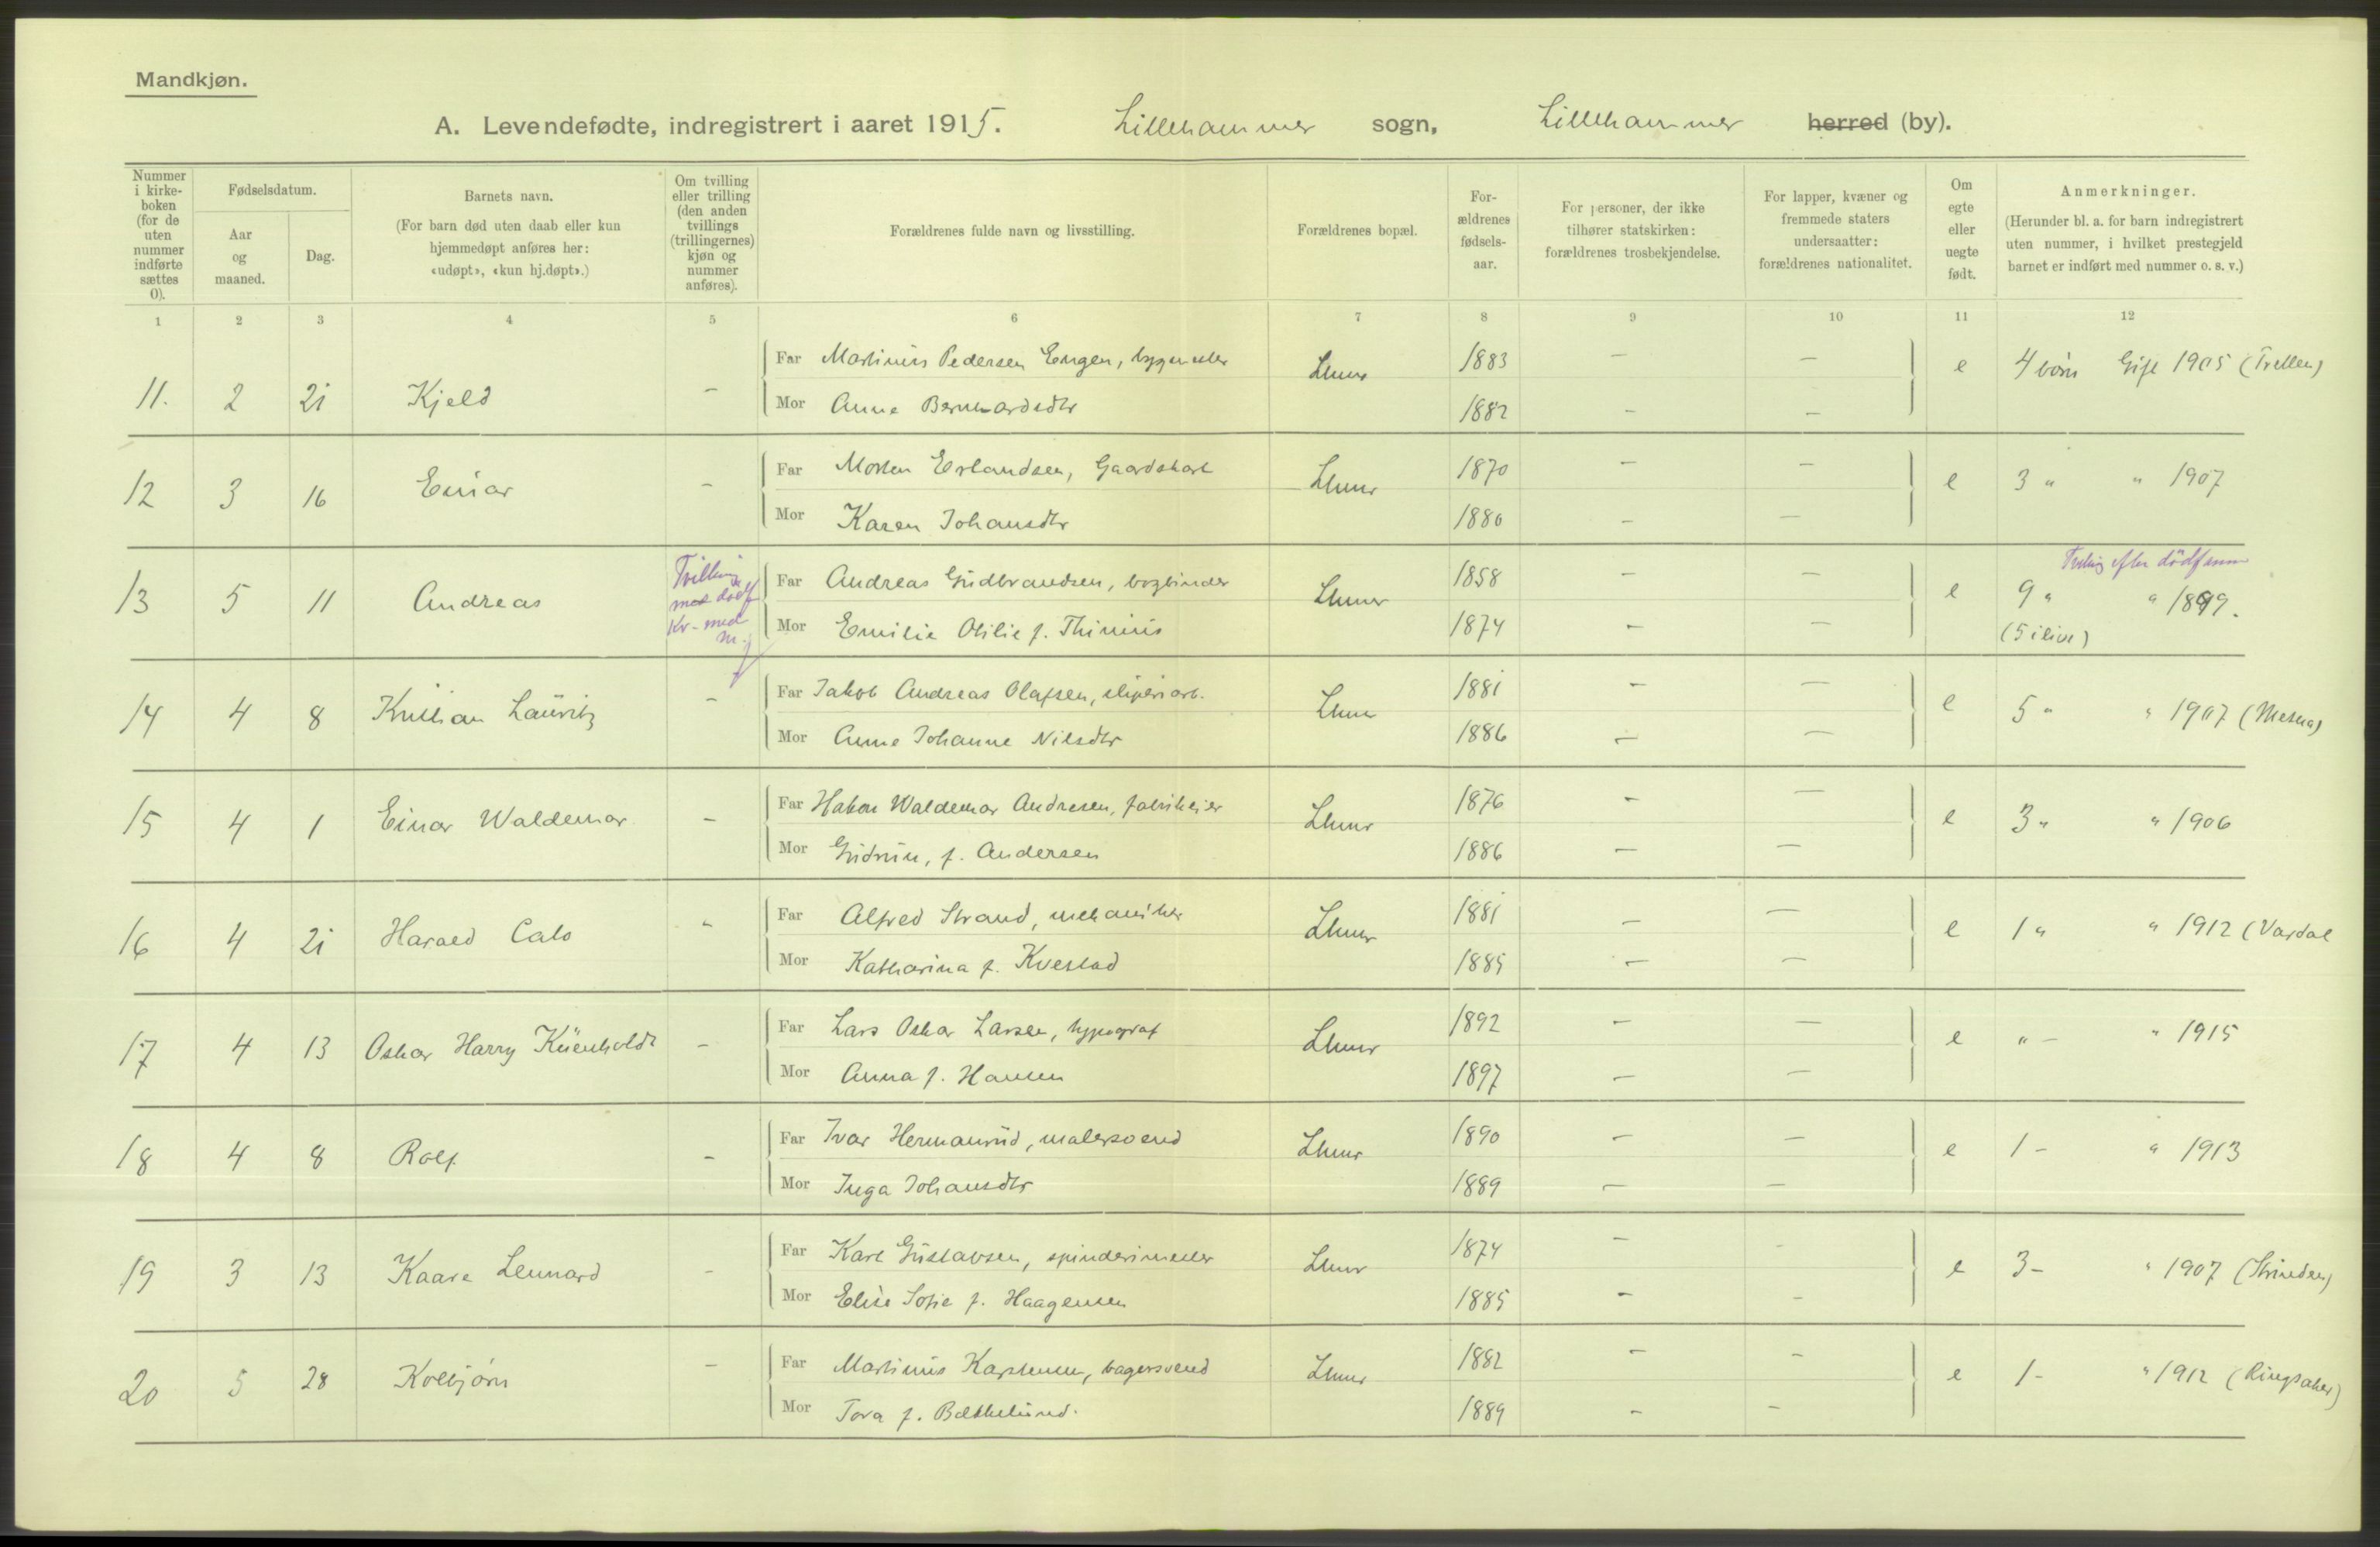 Mandkjøn.
A. Levendefødte, indregistrert i aaret 1915. Lillehammer sogn, Lillehammer herred (by).
Nummer i kirke-boken (for de uten nummer indførte sættes 0).
Fødselsdatum.
Aar og maaned.
Dag.
Barnets navn.
(For barn død uten daab eller kun hjemmedøpt anføres her: «udøpt», «kun hj.døpt».)
Om tvilling eller trilling (den anden tvillings (trillingernes) kjøn og nummer anføres).
Forældrenes fulde navn og livsstilling.
Forældrenes bopæl.
For-ældrenes fødsels-aar.
For personer, der ikke tilhører statskirken: forældrenes trosbekjendelse.
For lapper, kvæner og fremmede staters undersaatter: forældrenes nationalitet.
Om egte eller uegte født.
Anmerkninger.
(Herunder bl. a. for barn indregistrert uten nummer, i hvilket prestegjeld barnet er indført med nummer o. s. v.)
1 2 3 4 5 6 7 8 9 10 11 12
Far Martinus Pedersen Engen, Lhmr 1883 — — e 4 børn Gift 1905
11. 2 21 Kjeld —
Mor Anne Bernhardsdtr 1882 — —
Far Morten Erlandsen, Gaardskarl Lhmr 1870 — — e 3 " " 1907
12 3 16 Einar —
Mor Karen Johansdtr 1880 — —
Tvilling med dødf Kv. med m.
Far Andreas Gudbrandsen, bogbinder Lhmr 1858 — — e 9 " " 1899.
13 5 11 Andreas
Mor Emilie Otilie f. Thinius 1874 — — (5 ilive)
Far Jakob Andreas Olafsen, sliperiarb. Lhmr 1881 — — e 5 " " 1907 (Mesna)
14 4 8 Kristian Lauritz —
Mor Anne Johanne Nilsdtr 1886 — —
Far Hakon Waldemar Andresen, fabrikeier Lhmr 1876 — — e 3 " " 1906
15 4 1 Einar Waldemar —
Mor Gudrun, f. Andersen 1886 — —
Far Alfred Strand, mekaniker Lhmr 1881 — — e 1 " " 1912 (Vardal
16 4 21 Harald Calo "
Mor Katharina f. Kvestad 1885 — —
Far Lars Oskar Larsen, typograf Lhmr 1892 — — e " — " 1915
17 4 13 Oskar Harry Küenholdt —
Mor Anna f. Hansen 1897 — —
Far Ivar Hermanrud, malersvend Lhmr 1890 — — e 1 - " 1913
18 4 8 Rolf —
Mor Inga Johansdtr 1889 — —
Far Karl Gustavsen, spinderimester Lhmr 1874 — - e 3 - " 1907 (Strinden)
19 3 13 Kaare Lennard -
Mor Elise Sofie f. Haagensen 1885 — -
Far Martinius Karstensen, bagersvend Lhmr 1882 — — e 1 - " 1912 (Ringsaker)
20 5 28 Kolbjørn —
Mor Tora f. Bækkelund. 1889 — —